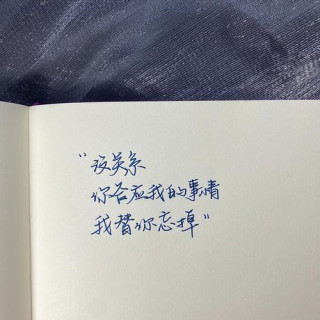 "没关系
你答应我的事情
我替你忘掉"